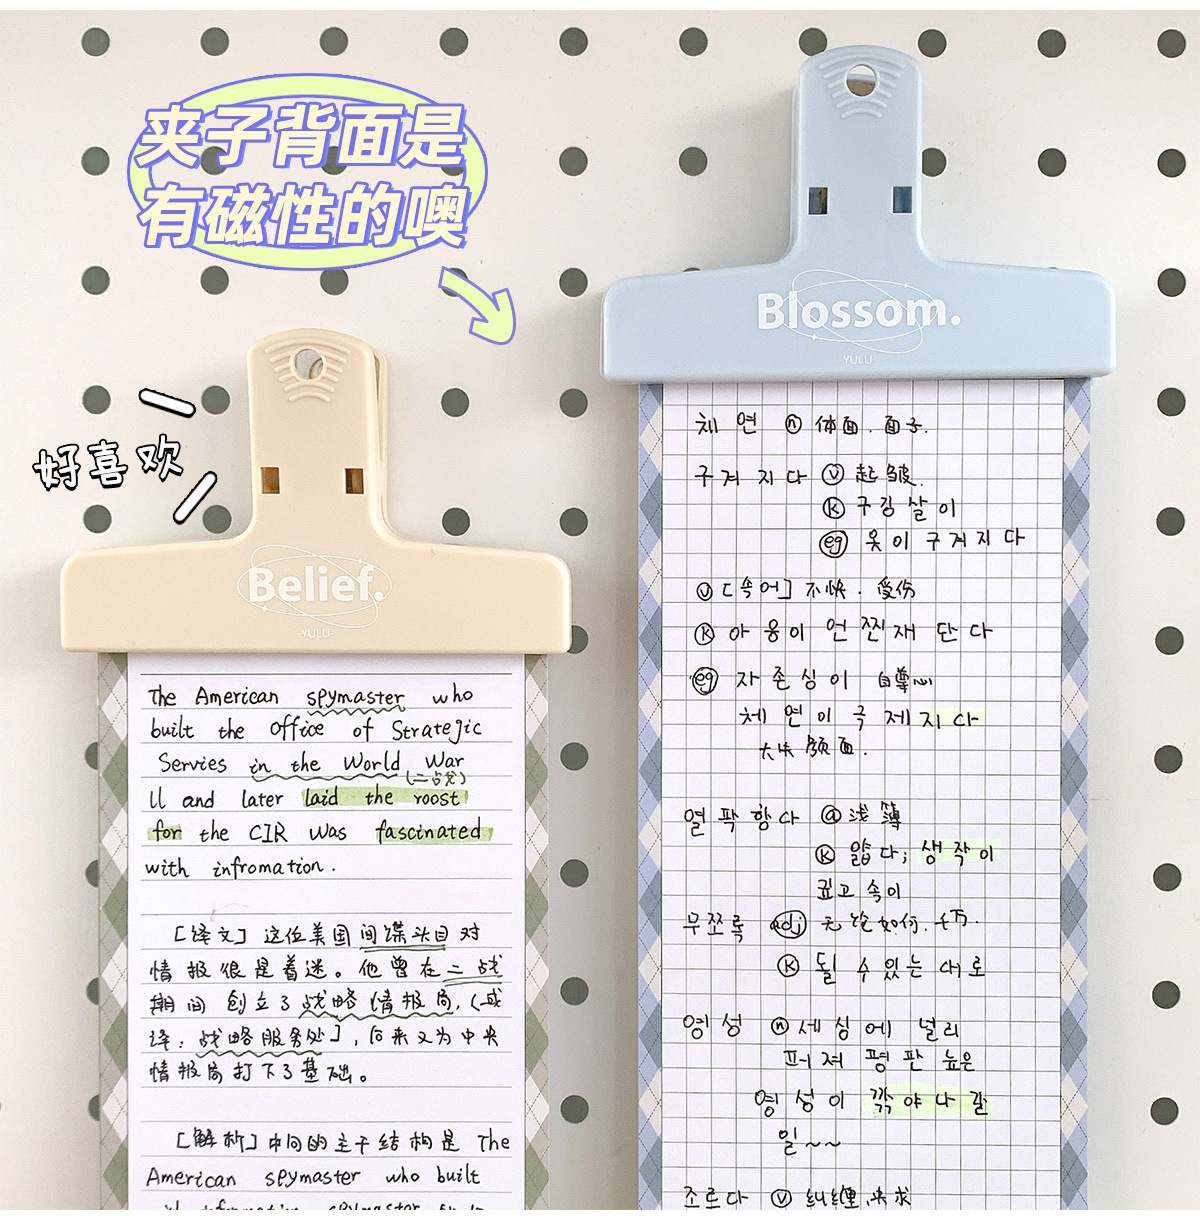 夹子背面是
有磁性的噢
好喜欢
Belief.
-YULU-
The American spymaster who
built the Office of Strategic
Servies in the World War
(二战)
ll and later laid the roost
for the CIR was fascinated
with infromation.
[译文] 这位美国间谍头目对
情报很是着迷。他曾在二战
期间创立了战略情报局,(或
译:战略服务处],后来又为中央
情报局打下了基础。
[解析] 中间的主干结构是 The
American spymaster who built
Blossom.
-YULU-
체면 ⓝ 体面.面子.
구겨지다 ⓥ 起皱.
ⓚ 구김살이
eg 옷이 구겨지다
ⓥ [속어] 不快.受伤
ⓚ 아웅이 언 찐재 단다
eg 자존심이 自尊心
체면이 극제지다
大失颜面.
열팍항다 ⓐ 浅薄
ⓚ 얇다; 생작이
깊고 속이
무쪼록 adj 无论如何.千万.
ⓚ 될 수 있는 대로
명성 ⓝ 세상에 널리
퍼져 평판 높은
명성이 깍야나갈
일~~
조르다 ⓥ 纠缠.央求